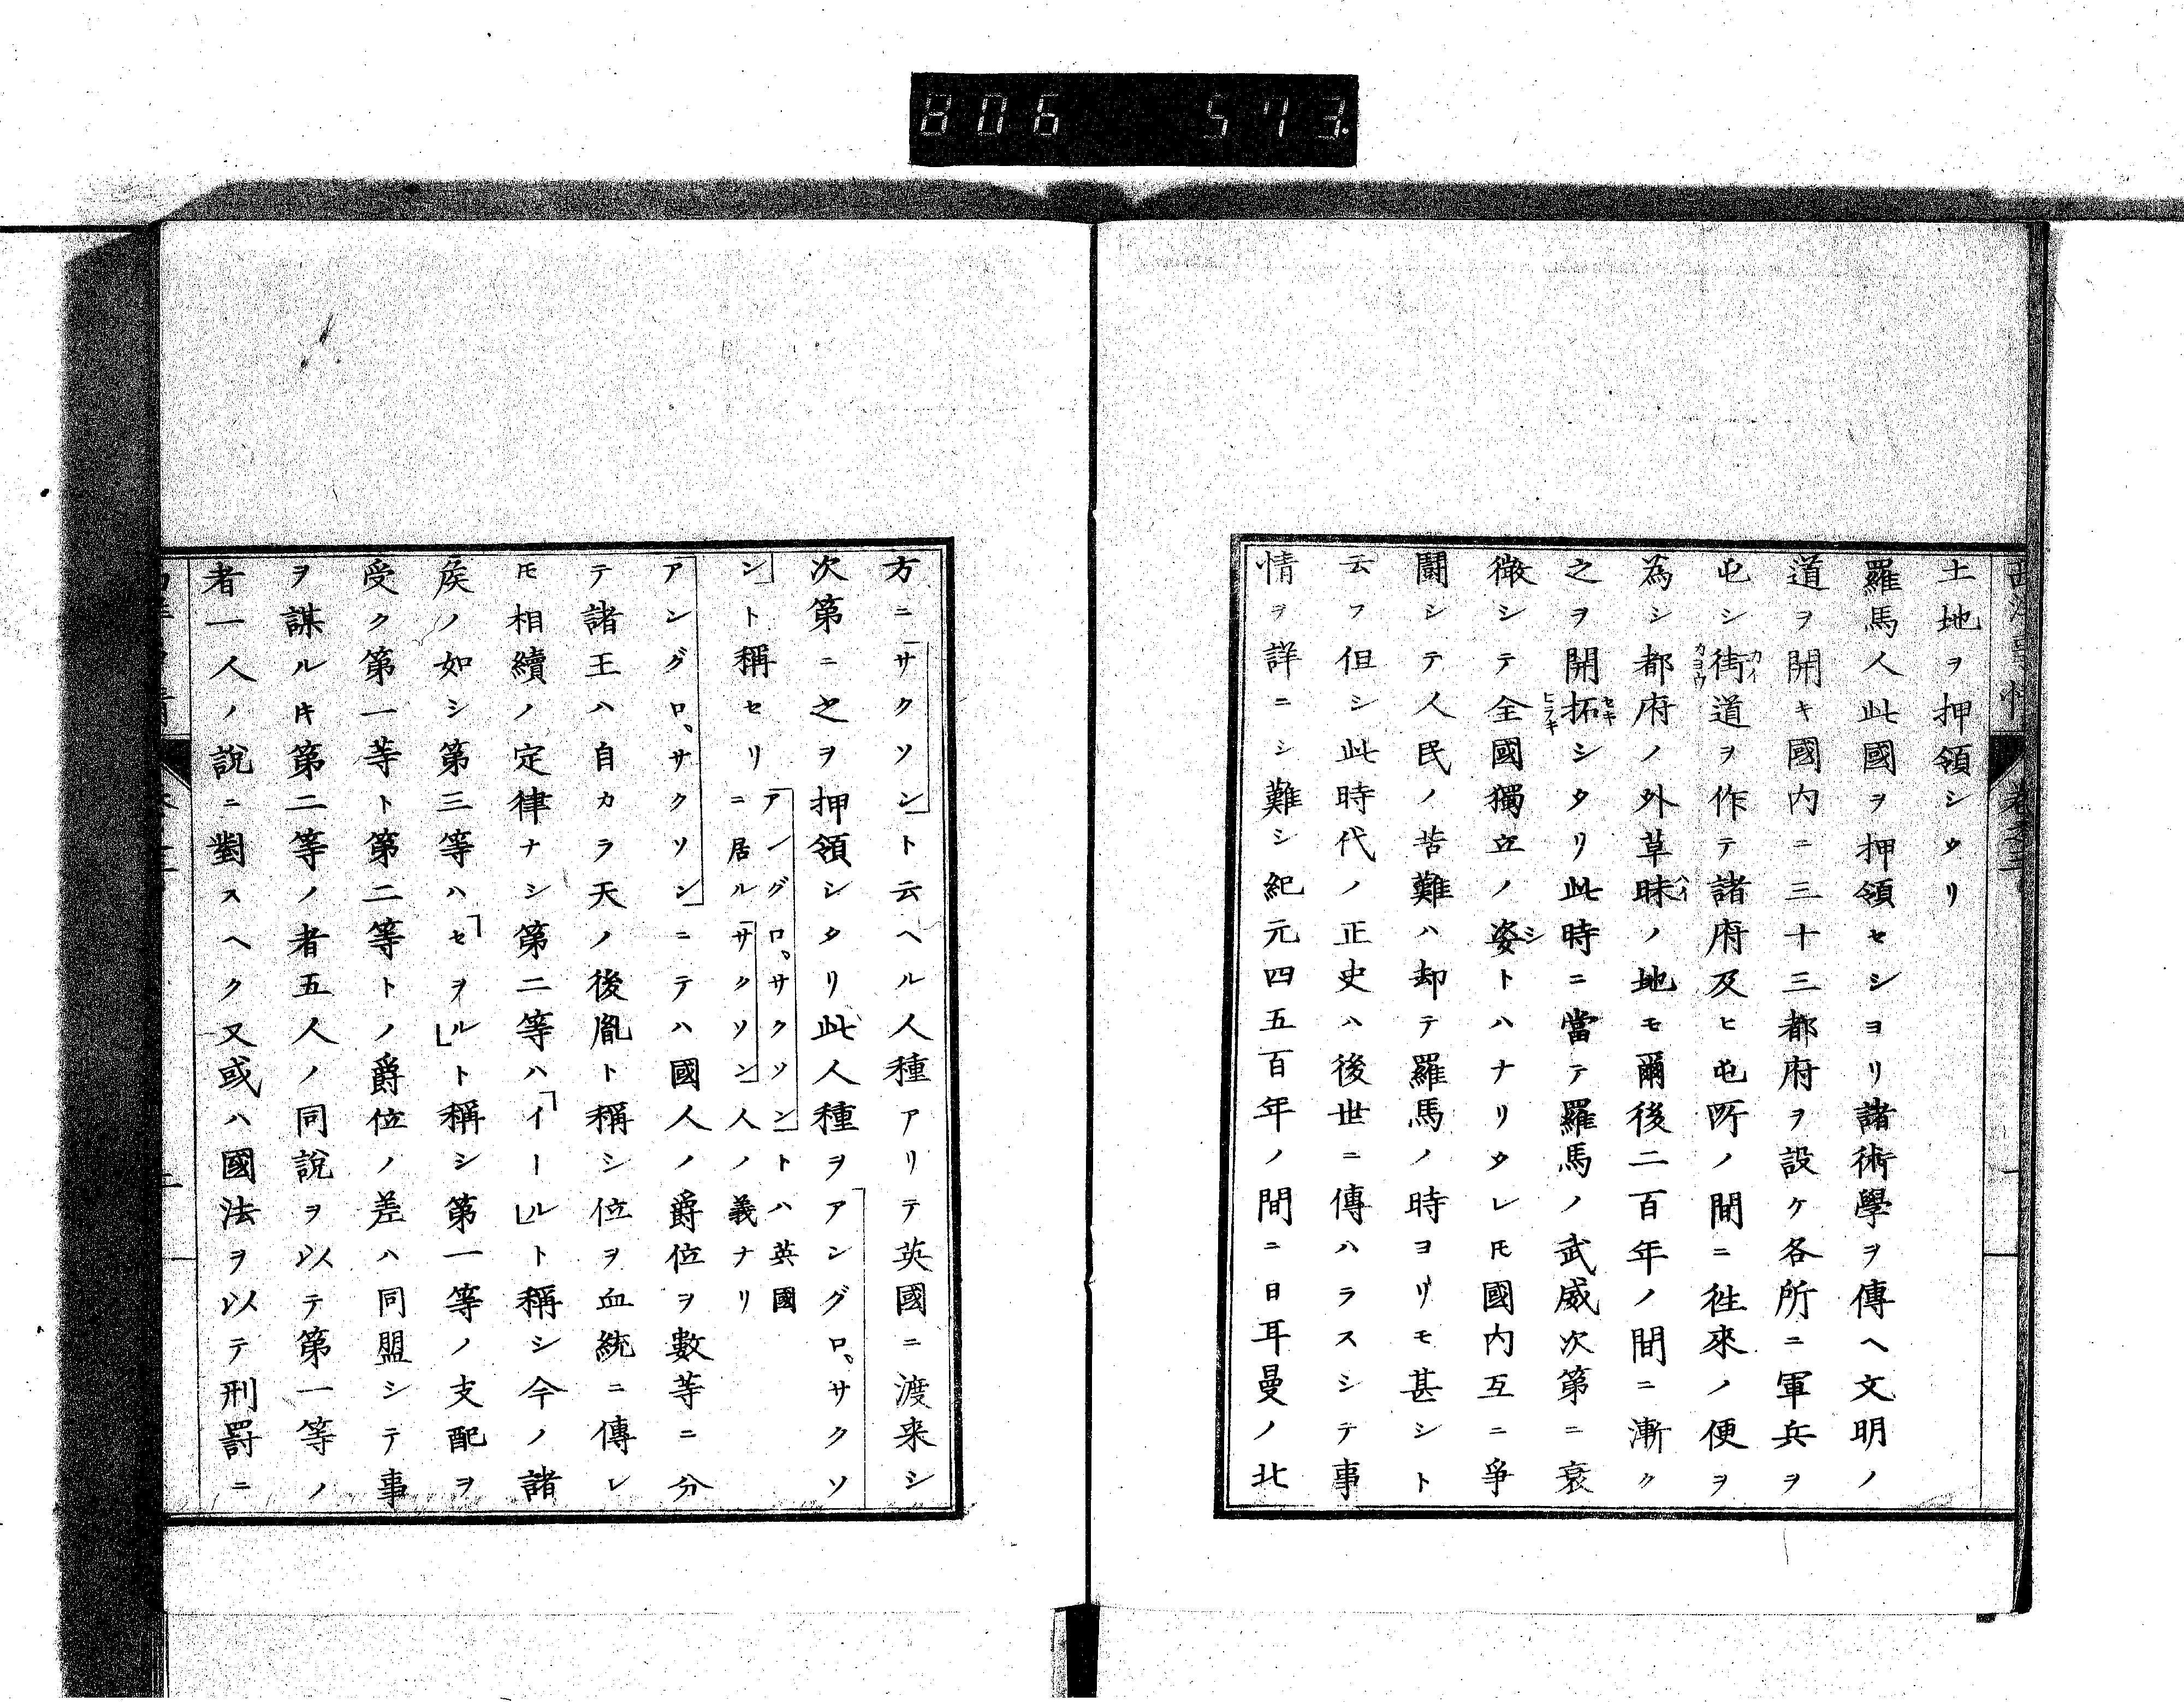 806 573.
土地ヲ押領シタリ
羅馬人此國ヲ押領セシヨリ諸術學ヲ傳ヘ文明ノ
道ヲ開キ國内ニ三十三都府ヲ設ケ各所ニ軍兵ヲ
屯シ街道ヲ作テ諸府及ヒ屯所ノ間ニ徃來ノ便ヲ
為シ都府ノ外草昧ノ地モ爾後二百年ノ間ニ漸ク
之ヲ開拓シタリ此時ニ當テ羅馬ノ武威次第ニ衰
微シテ全國獨立ノ姿トハナリタレ𪜈國内互ニ爭
鬪シテ人民ノ苦難ハ却テ羅馬ノ時ヨリモ甚シト
云フ但シ此時代ノ正史ハ後世ニ傳ハラスシテ事
情ヲ詳ニシ難シ紀元四五百年ノ間ニ日耳曼ノ北
方ニ「サクソン」ト云ヘル人種アリテ英國ニ渡来シ
次第ニ之ヲ押領シタリ此人種ヲ「アングロ、サクソ
ン」ト稱セリ「アングロ、サクソン」トハ英國
ニ居ル「サクソン」人ノ義ナリ
「アングロ、サクソン」ニテハ國人ノ爵位ヲ數等ニ分
テ諸王ハ自カラ天ノ後胤ト稱シ位ヲ血統ニ傳レ
𪜈相續ノ定律ナシ第二等ハ「イール」ト稱シ今ノ諸
矦ノ如シ第三等ハ「セヲル」ト稱シ第一等ノ支配ヲ
受ク第一等ト第二等トノ爵位ノ差ハ同盟シテ事
ヲ謀ルキ第二等ノ者五人ノ同說ヲ以テ第一等ノ
者一人ノ說ニ對スヘク又或ハ國法ヲ以テ刑罸ニ